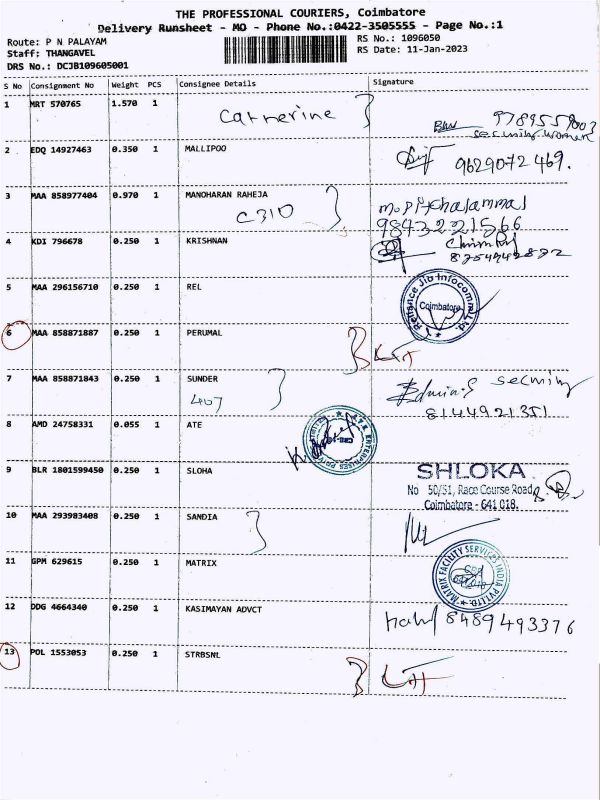 THE PROFESSIONAL COURIERS, Coimbatore
Delivery Runsheet - MO - Phone No.:0422-3505555 - Page No.:1
Route: P N PALAYAM
RS No.: 1096050
Staff: THANGAVEL
RS Date: 11-Jan-2023
DRS No.: DCJB109605001
S No Consignment No Weight PCS Consignee Details Signature
1 MRT 570765 1.570 1 Catherine
9789559003
2 EDQ 14927463 0.350 1 MALLIPOO
9629072469.
3 MAA 858977404 0.970 1 MANOHARAN RAHEJA
C310
9843221566
4 KDI 796678 0.250 1 KRISHNAN
5 MAA 296156710 0.250 1 REL
Reliance Jio Infocomm
Coimbatore
6 MAA 858871887 0.250 1 PERUMAL
7 MAA 858871843 0.250 1 SUNDER
407
8144921351
8 AMD 24758331 0.055 1 ATE
9 BLR 1801599450 0.250 1 SLOHA
SHLOKA
No 50/51, Race Course Road,
Coimbatore - 641 018.
10 MAA 293983408 0.250 1 SANDIA
11 GPM 629615 0.250 1 MATRIX
MATRIX FACILITY SERVICES INDIA PVT LTD.
12 DDG 4664340 0.250 1 KASIMAYAN ADVCT
8489493376
13 POL 1553053 0.250 1 STRBSNL